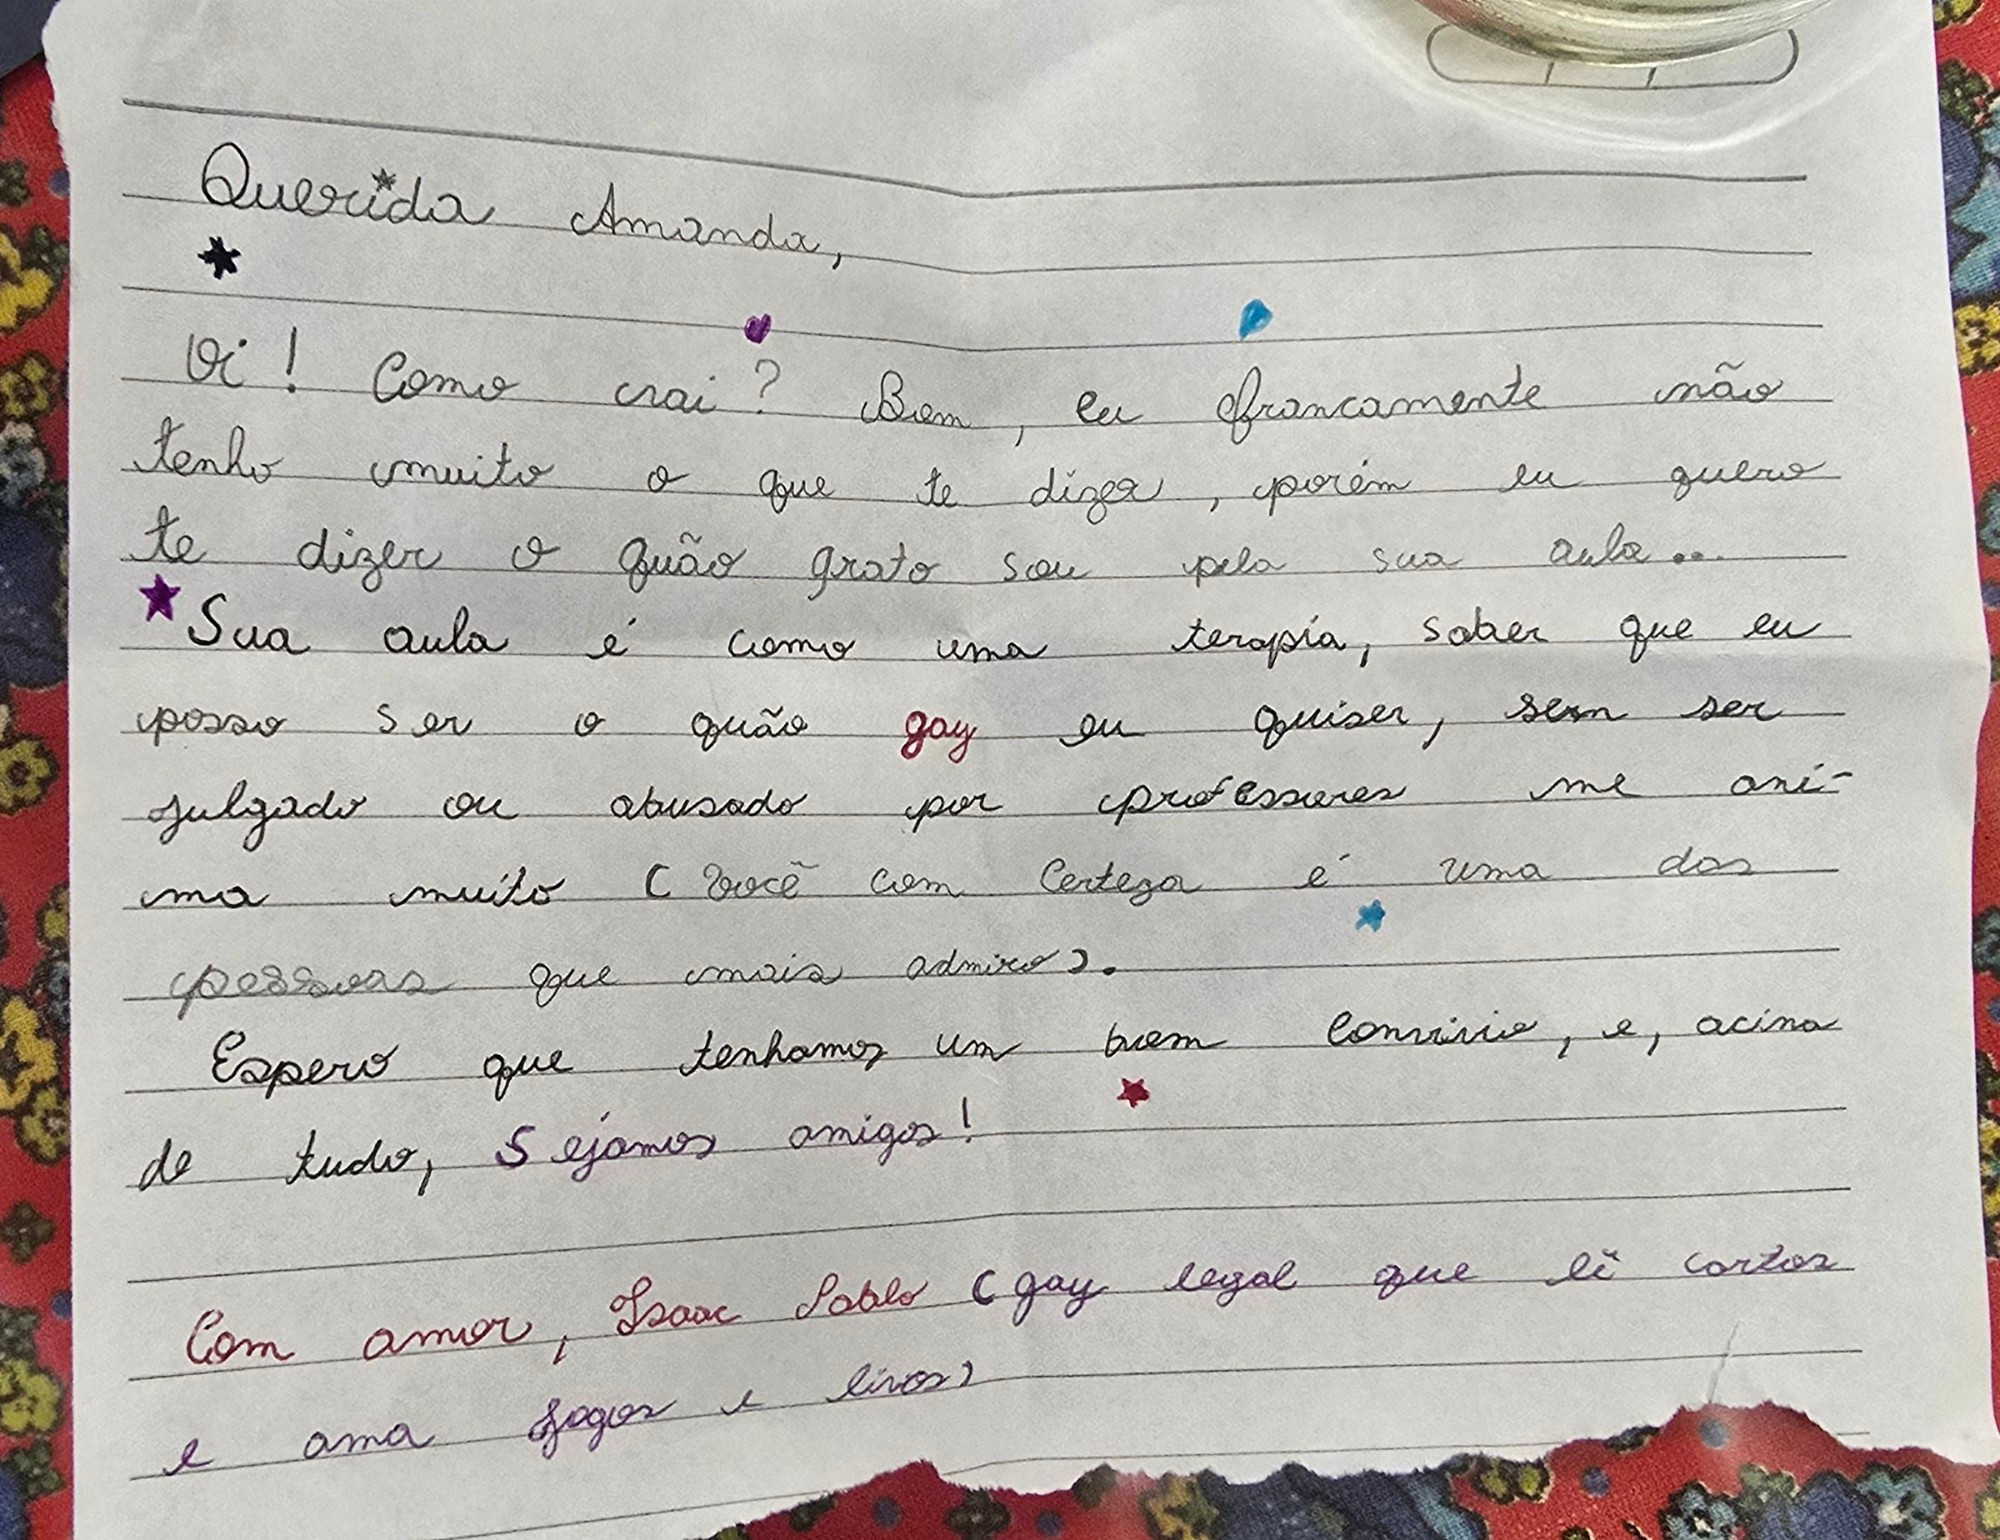 Querida Amanda,
Oi! Como vai? Bem, eu francamente não
tenho muito o que te dizer, porém eu quero
te dizer o quão grato sou pela sua aula...
Sua aula é como uma terapia, saber que eu
posso ser o quão gay eu quiser, sem ser
julgado ou abusado por professores me ani-
ma muito (você com certeza é uma das
pessoas que mais admiro).
Espero que tenhamos um bom convivio, e, acima
de tudo, sejamos amigos!
Com amor, Isaac Pablo (gay legal que lê cartas
e ama jogos e livros)